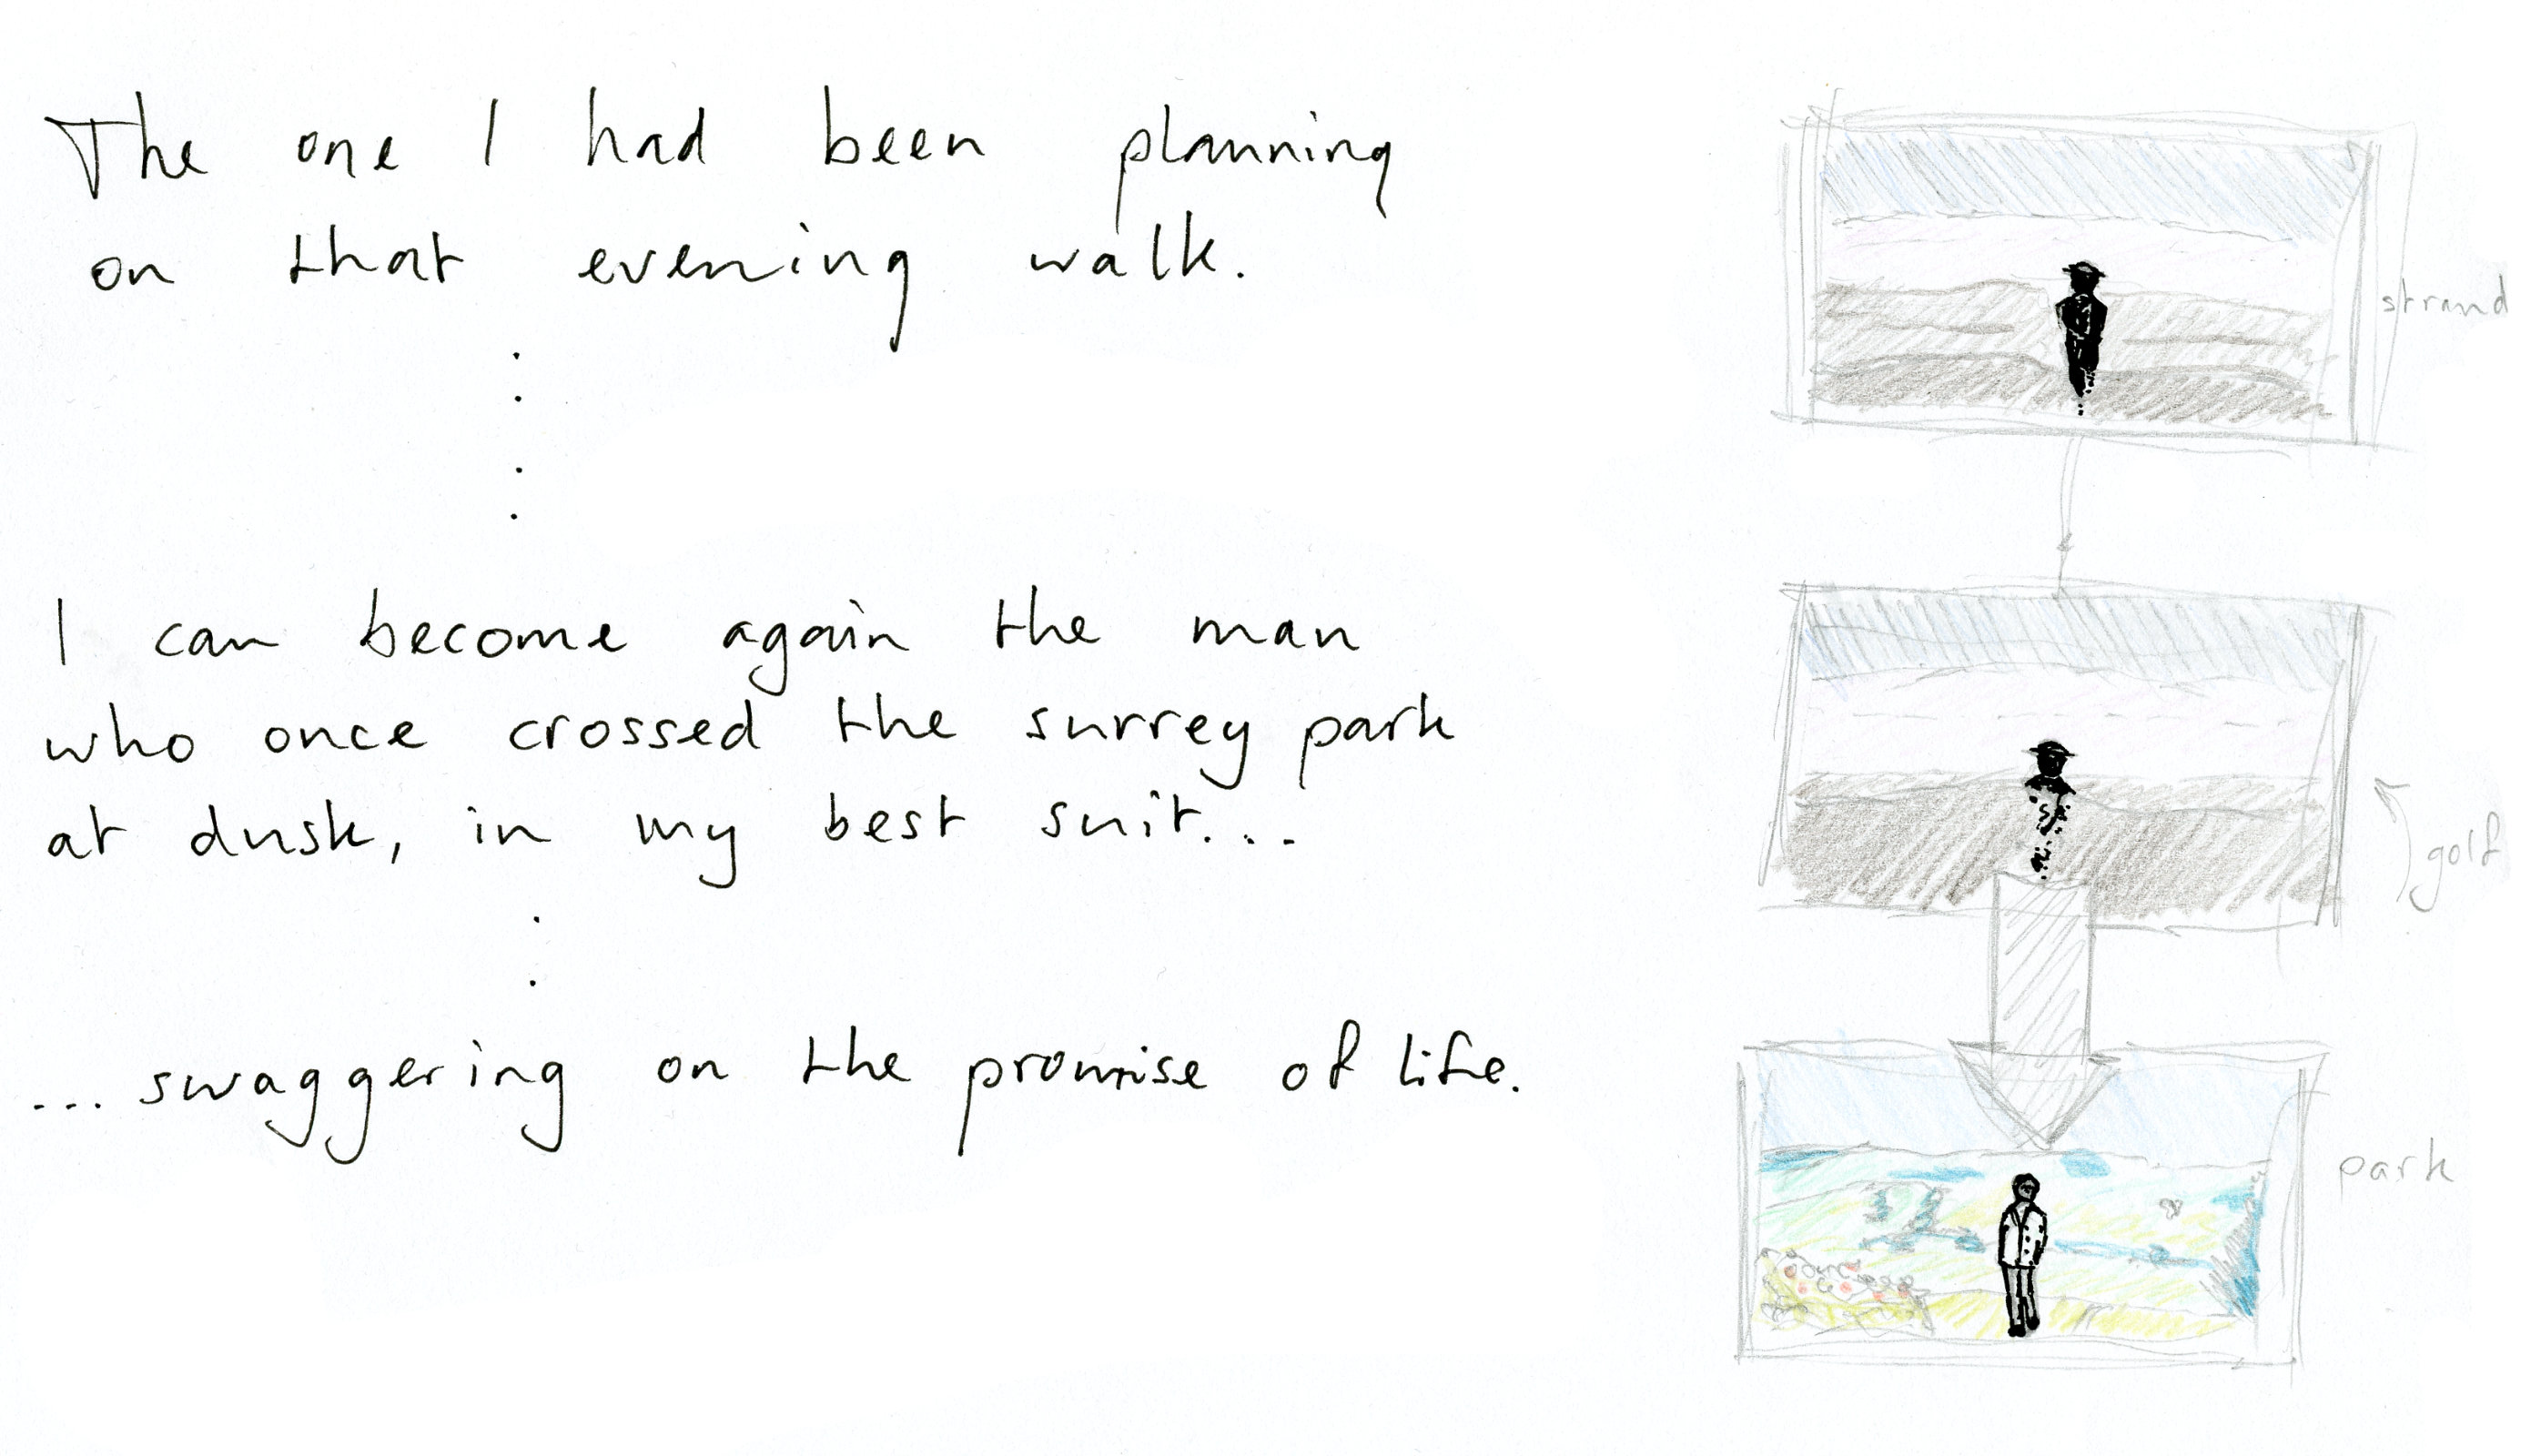 The one I had been planning
on that evening walk.
I can become again the man
who once crossed the surrey park
at dusk, in my best suit...
... swaggering on the promise of life.
strand
golf
park